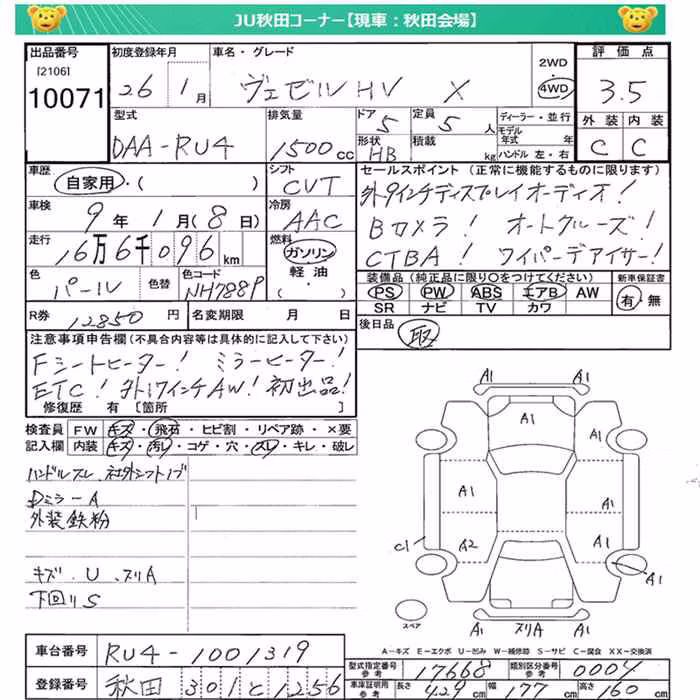 JU秋田コーナー【現車：秋田会場】
出品番号 初度登録年月 車名・グレード 2WD 4WD 評価点
[2106]
10071 26 1月 ヴェゼルHV X 3.5
型式 排気量 ドア 定員 ディーラー・並行 外装 内装
DAA-RU4 1500cc 5 5人 モデル年式 年 C C
形状 HB 積載 kg ハンドル 左・右
車歴 自家用・( ) シフト CVT セールスポイント (正常に機能するものに限ります)
車検 9年1月(8日) 冷房 AAC 外9インチディスプレイオーディオ！
Bカメラ！ オートクルーズ！
走行 16万6千096km 燃料 ガソリン 軽油 ・( ) CTBA！ ワイパーデアイサー！
色 パール 色替 色コード NH788P 装備品 (純正品に限り○をつけてください) 新車保証書
PS PW ABS エアB AW 有・無
SR ナビ TV カワ
R券 12850円 名変期限 月 日 後日品 取
注意事項申告欄(不具合内容等は具体的に記入して下さい)
Fシートヒーター！ ミラーヒーター！
ETC！ 外17インチAW！ 初出品！
修復歴 有 [箇所 ]
検査員 FW キズ・飛石・ヒビ割・リペア跡・×要
記入欄 内装 キズ・汚レ・コゲ・穴・スレ・キレ・破レ
ハンドルスレ 社外シフトノブ
DミラーA
外装鉄粉
キズ．U．スリA
下回りS
A1 A1
A1
A1 A1
A2 A1
C1 A1
スペア A1 スリA A1
A－キズ E－エクボ U－凹み W－補修跡 S－サビ C－腐食 XX－交換済
車台番号 RU4-1001319
型式指定番号 参考 17668 類別区分番号 参考 0004
登録番号 秋田 301 と 1256
車庫証明用 参考 長さ 429cm 幅 177cm 高さ 160cm